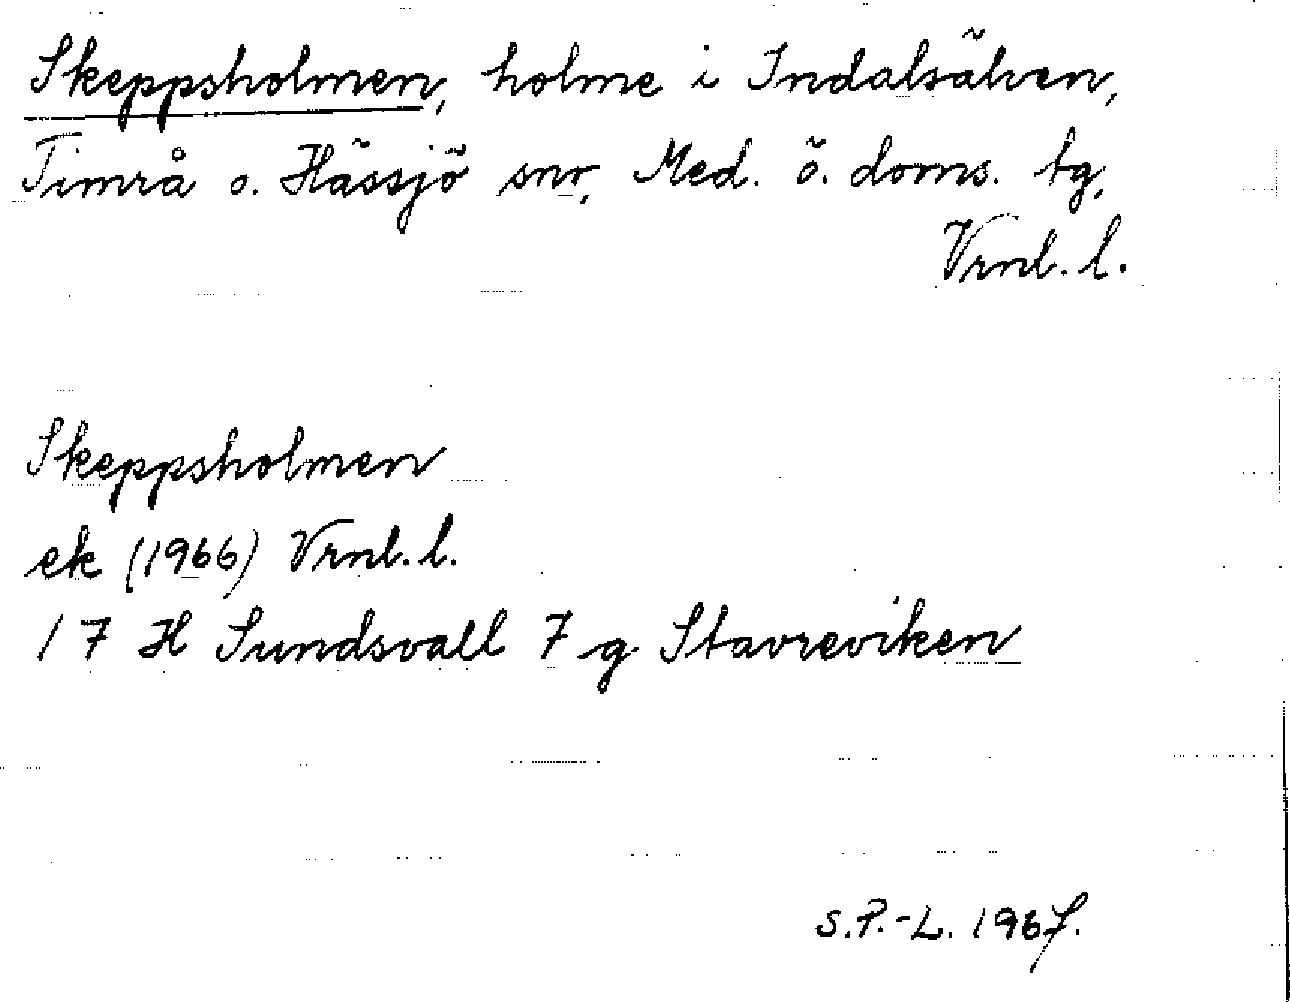 Skeppsholmen, holme i Indalsälven,
Timrå o. Hässjö snr, Med. ö. doms. tg,
Vrnl. l.
Skeppsholmen
ek (1966) Vrnl. l.
17 H Sundsvall 7 g Stavreviken
S.P.-L. 1967.